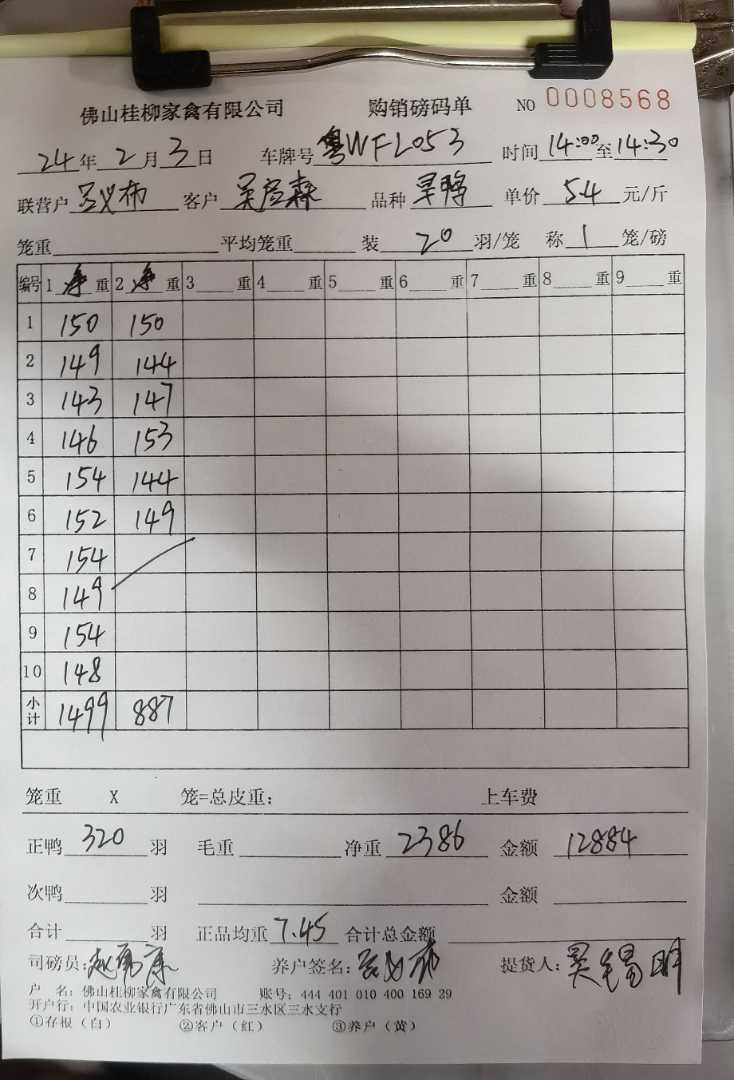 佛山桂柳家禽有限公司 购销磅码单 NO 0008568
24年2月3日 车牌号 粤WFL053 时间 14:00至14:30
联营户 客户 品种 单价 5.4 元/斤
笼重 平均笼重 装 20 羽/笼 称 1 笼/磅
编号 1 净 重 2 净 重 3 重 4 重 5 重 6 重 7 重 8 重 9 重
1 150 150
2 149 144
3 143 147
4 146 153
5 154 144
6 152 149
7 154
8 149
9 154
10 148
小计 1499 887
笼重 X 笼=总皮重: 上车费
正鸭 320 羽 毛重 净重 2386 金额 12884
次鸭 羽 金额
合计 羽 正品均重 7.45 合计总金额
司磅员: 养户签名: 提货人:
户 名: 佛山桂柳家禽有限公司 账号: 444 401 010 400 169 29
开户行: 中国农业银行广东省佛山市三水区三水支行
①存根（白） ②客户（红） ③养户（黄）